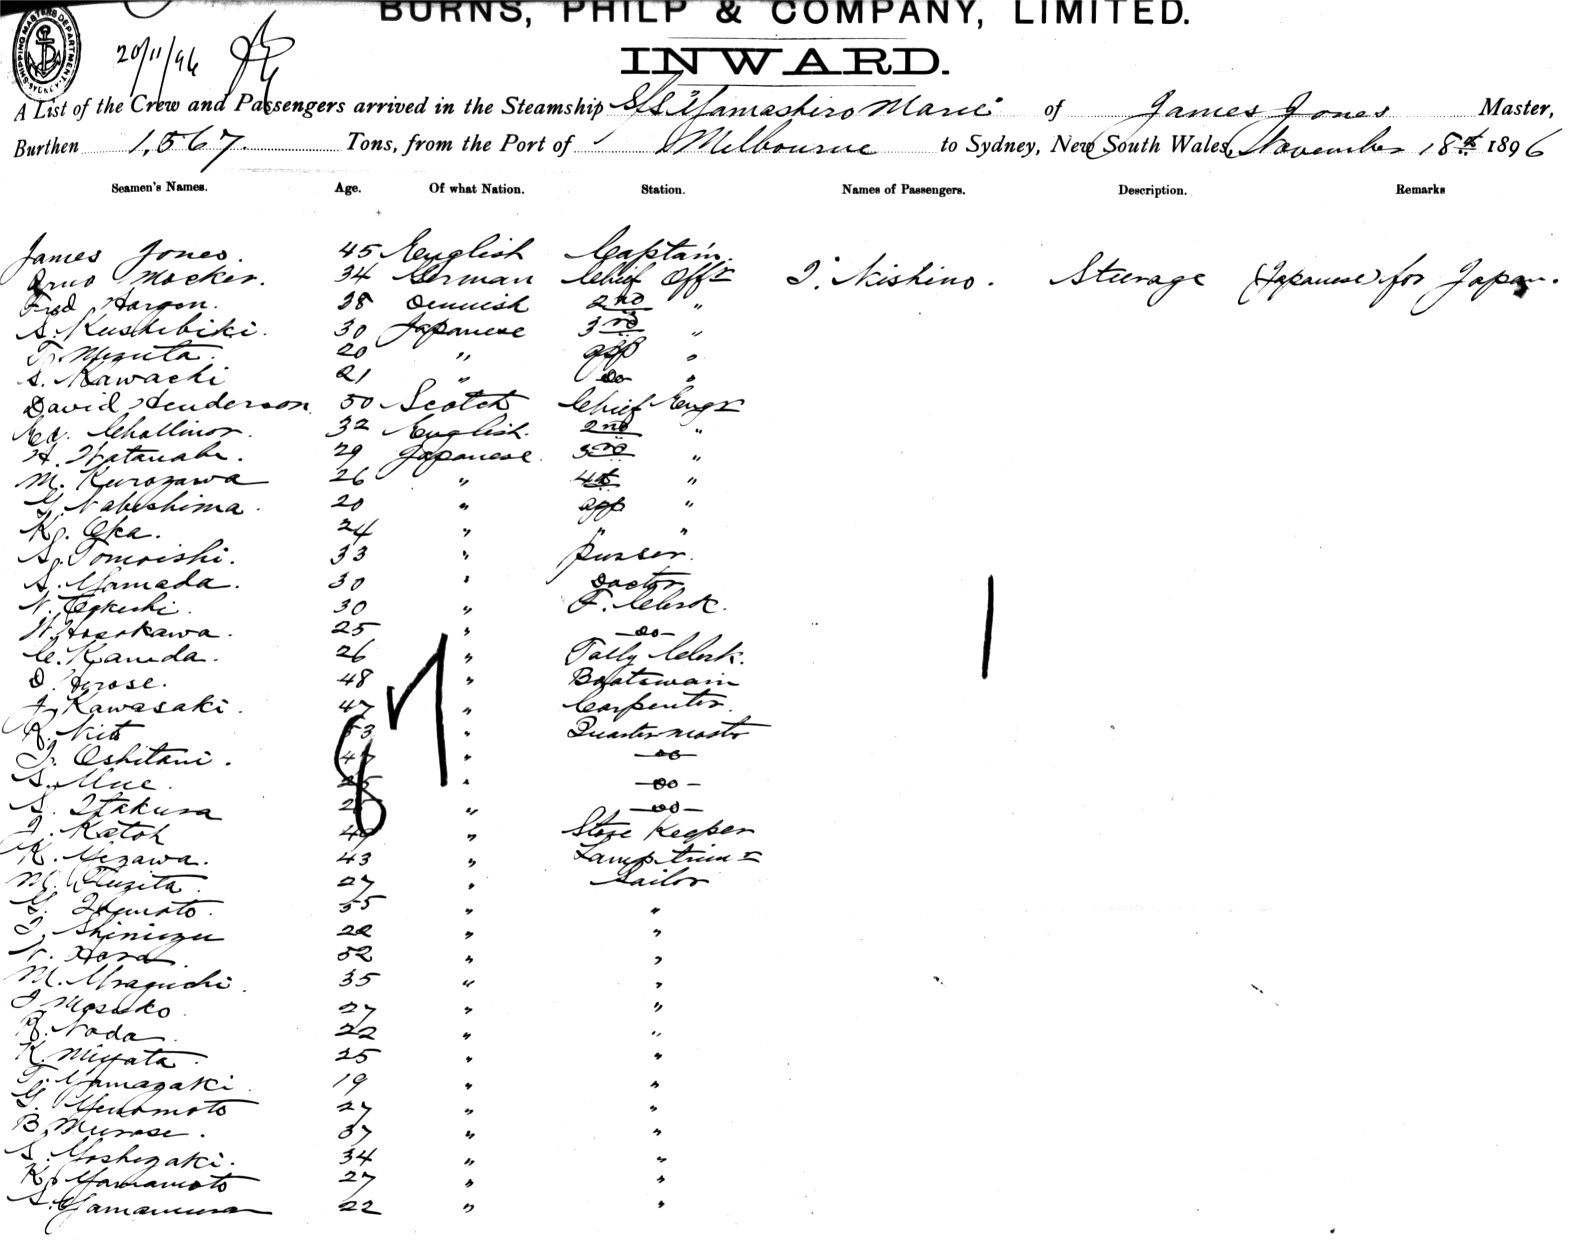 BURNS, PHILP & COMPANY, LIMITED.
SHIPPING MASTERS DEPARTMENT SYDNEY
20/11/96
INWARD.
A List of the Crew and Passengers arrived in the Steamship S/S "Yamashiro Maru" of James Jones Master,
Burthen 1,567 Tons, from the Port of Melbourne to Sydney, New South Wales, November 18th 1896
Seamen's Names. Age. Of what Nation. Station. Names of Passengers. Description. Remarks
James Jones. 45 English Captain.
Arno Mocker. 34 German Chief Offr T. Nishino. Steerage (Japanese) for Japan.
Fred Hargen. 38 Dennish 2nd "
S. Kushibiki. 30 Japanese 3rd "
T. Mizuta. 20 " app "
S. Kawachi 21 " Do "
David Henderson 50 Scotch Chief Engr
Ed. Challinor. 32 English. 2nd "
H. Watanabe. 29 Japanese. 3rd "
M. Kurozawa 26 " 4th "
G. Nabeshima. 20 " app "
K. Oka. 24 " " "
S. Tomoishi. 33 " purser.
S. Yamada. 30 " Doctor
N. 30 " F. Clerk.
H. Hosokawa. 25 " -do-
C. Kaneda. 26 " Tally Clerk.
D. Hirose. 48 " Boatswain
J. Kawasaki. 47 " Carpenter.
K. Nito 53 " Quartermaster
T. Oshitani. " -do-
S. " -do-
S. Itakura " -do-
T. Katoh " Store Keeper
K. 43 " Lamp trimr
M. Fuzita. 27 " Sailor
G. 35 " "
T. Shimizu 22 " "
N. Hora 52 " "
M. Uraguchi. 35 " "
T. Masuko 27 " "
K. Noda 22 " "
K. Miyata. 25 " "
T. Yamazaki. 19 " "
G. Yenomoto 27 " "
B. Murase. 37 " "
S. Yoshizaki. 34 " "
K. Yamamoto 27 " "
S. Yamamura 22 " "
87
1